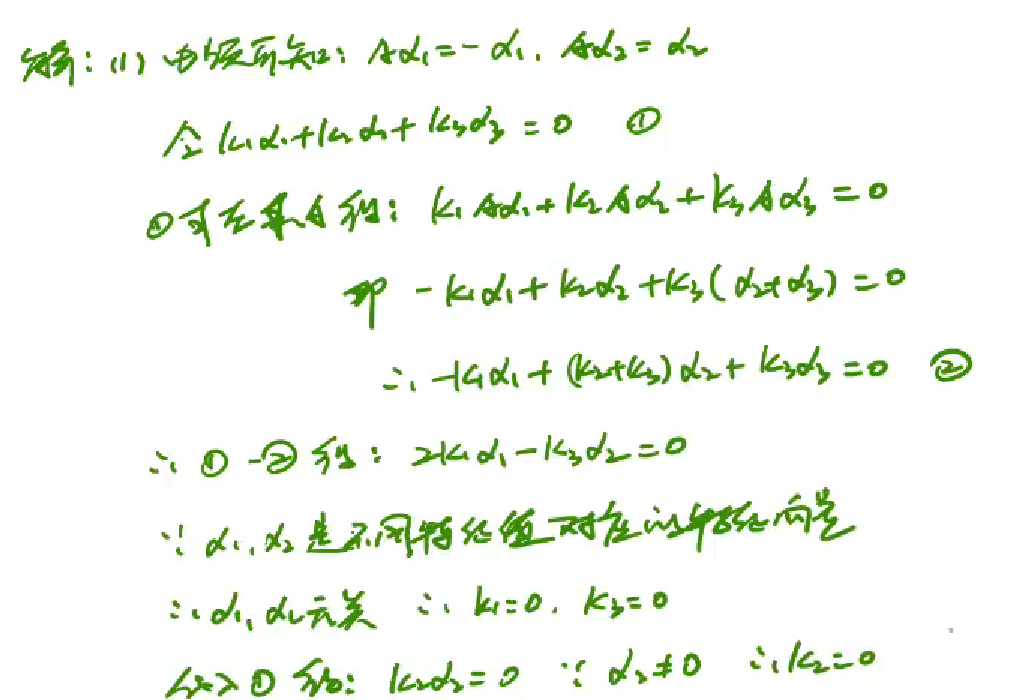 解：(1) 由题可知：Aα₁=-α₁，Aα₂=α₂
令 k₁α₁+k₂α₂+k₃α₃=0 ①
①式左乘A得：k₁Aα₁+k₂Aα₂+k₃Aα₃=0
即 -k₁α₁+k₂α₂+k₃(α₂+α₃)=0
∴ -k₁α₁+(k₂+k₃)α₂+k₃α₃=0 ②
∴ ①-②得：2k₁α₁-k₃α₂=0
∵ α₁，α₂是不同特征值对应的特征向量
∴ α₁，α₂无关 ∴ k₁=0．k₃=0
代入①得：k₂α₂=0 ∵ α₂≠0 ∴ k₂=0